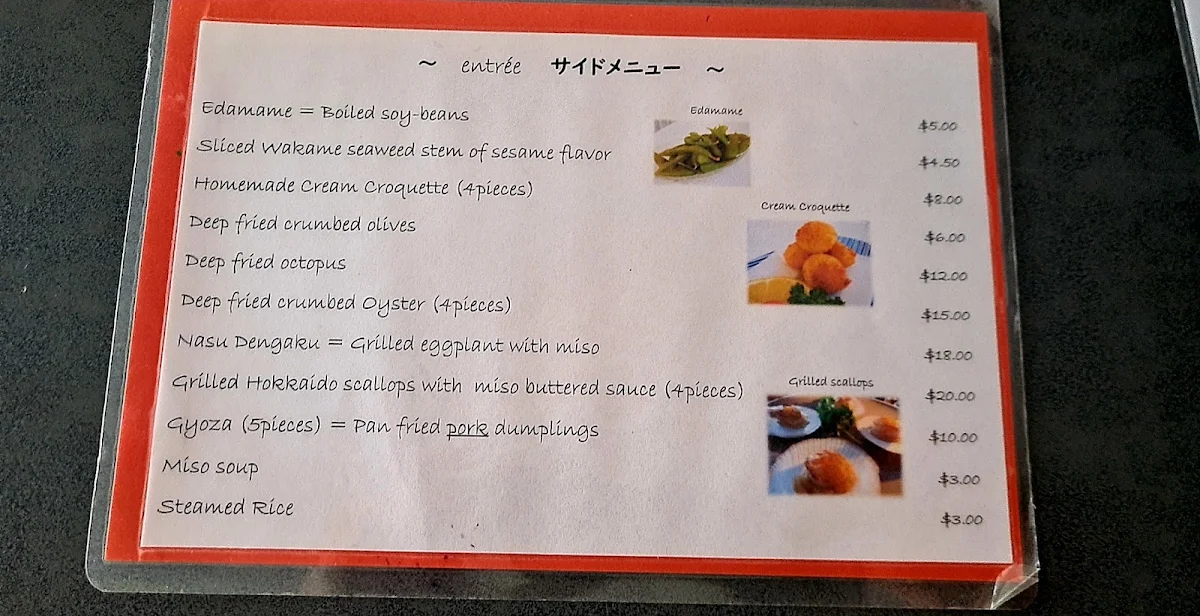 ～ entrée サイドメニュー ～
Edamame = Boiled soy-beans $5.00
Sliced Wakame seaweed stem of sesame flavor $4.50
Homemade Cream Croquette (4pieces) $8.00
Deep fried crumbed olives $6.00
Deep fried octopus $12.00
Deep fried crumbed Oyster (4pieces) $15.00
Nasu Dengaku = Grilled eggplant with miso $18.00
Grilled Hokkaido scallops with miso buttered sauce (4pieces) $20.00
Gyoza (5pieces) = Pan fried pork dumplings $10.00
Miso soup $3.00
Steamed Rice $3.00
Edamame
Cream Croquette
Grilled scallops